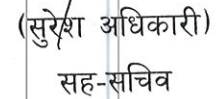 (सुरेश अधिकारी)
सह-सचिव